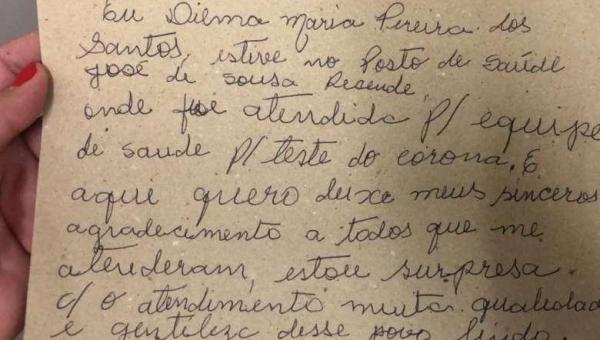 Eu Dilma Maria Pereira dos
Santos, estive no Posto de Saúde
José de Sousa Rezende,
onde fue atendida p/ equipe
de saude p/ teste do corona. E
aqui quero deixo meus sinceros
agradecimento a todos que me
atenderam, estou surpresa
c/ o atendimento muita qualidad
e gentileza desse povo lindo.